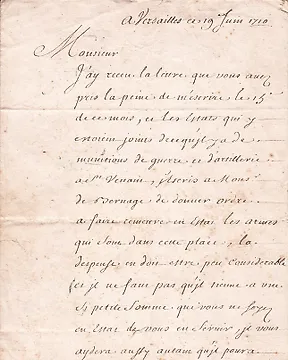 A Versailles ce 19 Juin 1710
Monsieur
J'ay receu la lettre que vous avez
pris la peine de m'escrire le 15
de ce mois, et les Estats qui y
estoient joints de ce qu'il y a de
munitions de guerre et d'artillerie
a St Venant, j'escris a Mons
de Bernage de donner ordre
a faire remettre en Estat les armes
qui sont dans cette place, la
despense en doit estre peu considerable
et je ne sans pas qu'il tienne a une
si petite somme que vous ne soyez
en Estat de vous en servir, je vous
ayderay aussy autant qu'il pourra